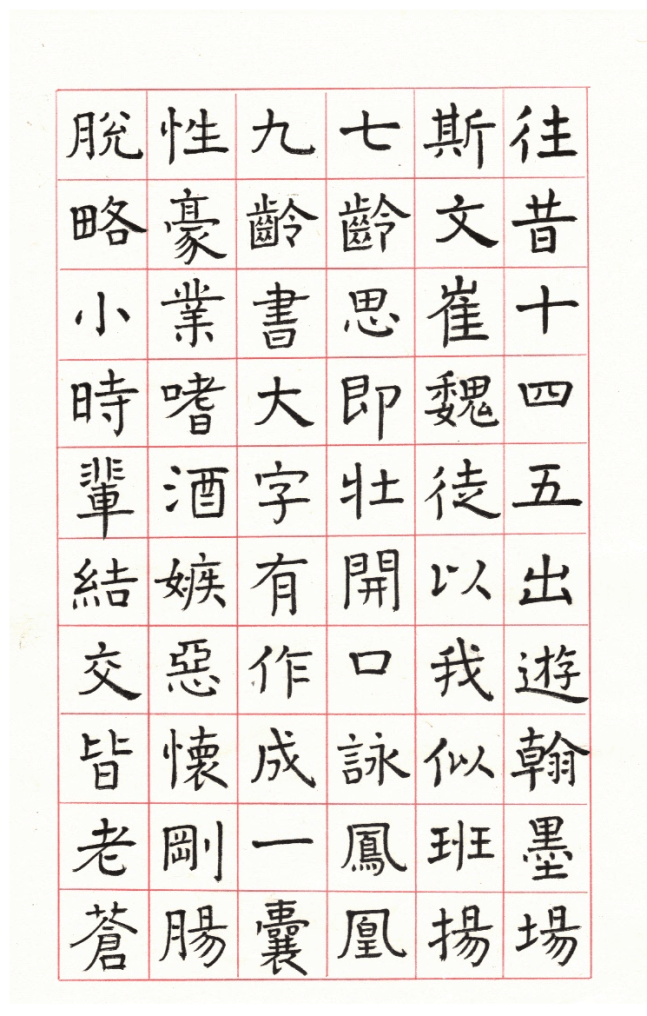 往昔十四五出遊翰墨場
斯文崔魏徒以我似班揚
七齡思即壯開口詠鳳凰
九齡書大字有作成一囊
性豪業嗜酒嫉惡懷剛腸
脫略小時輩結交皆老蒼